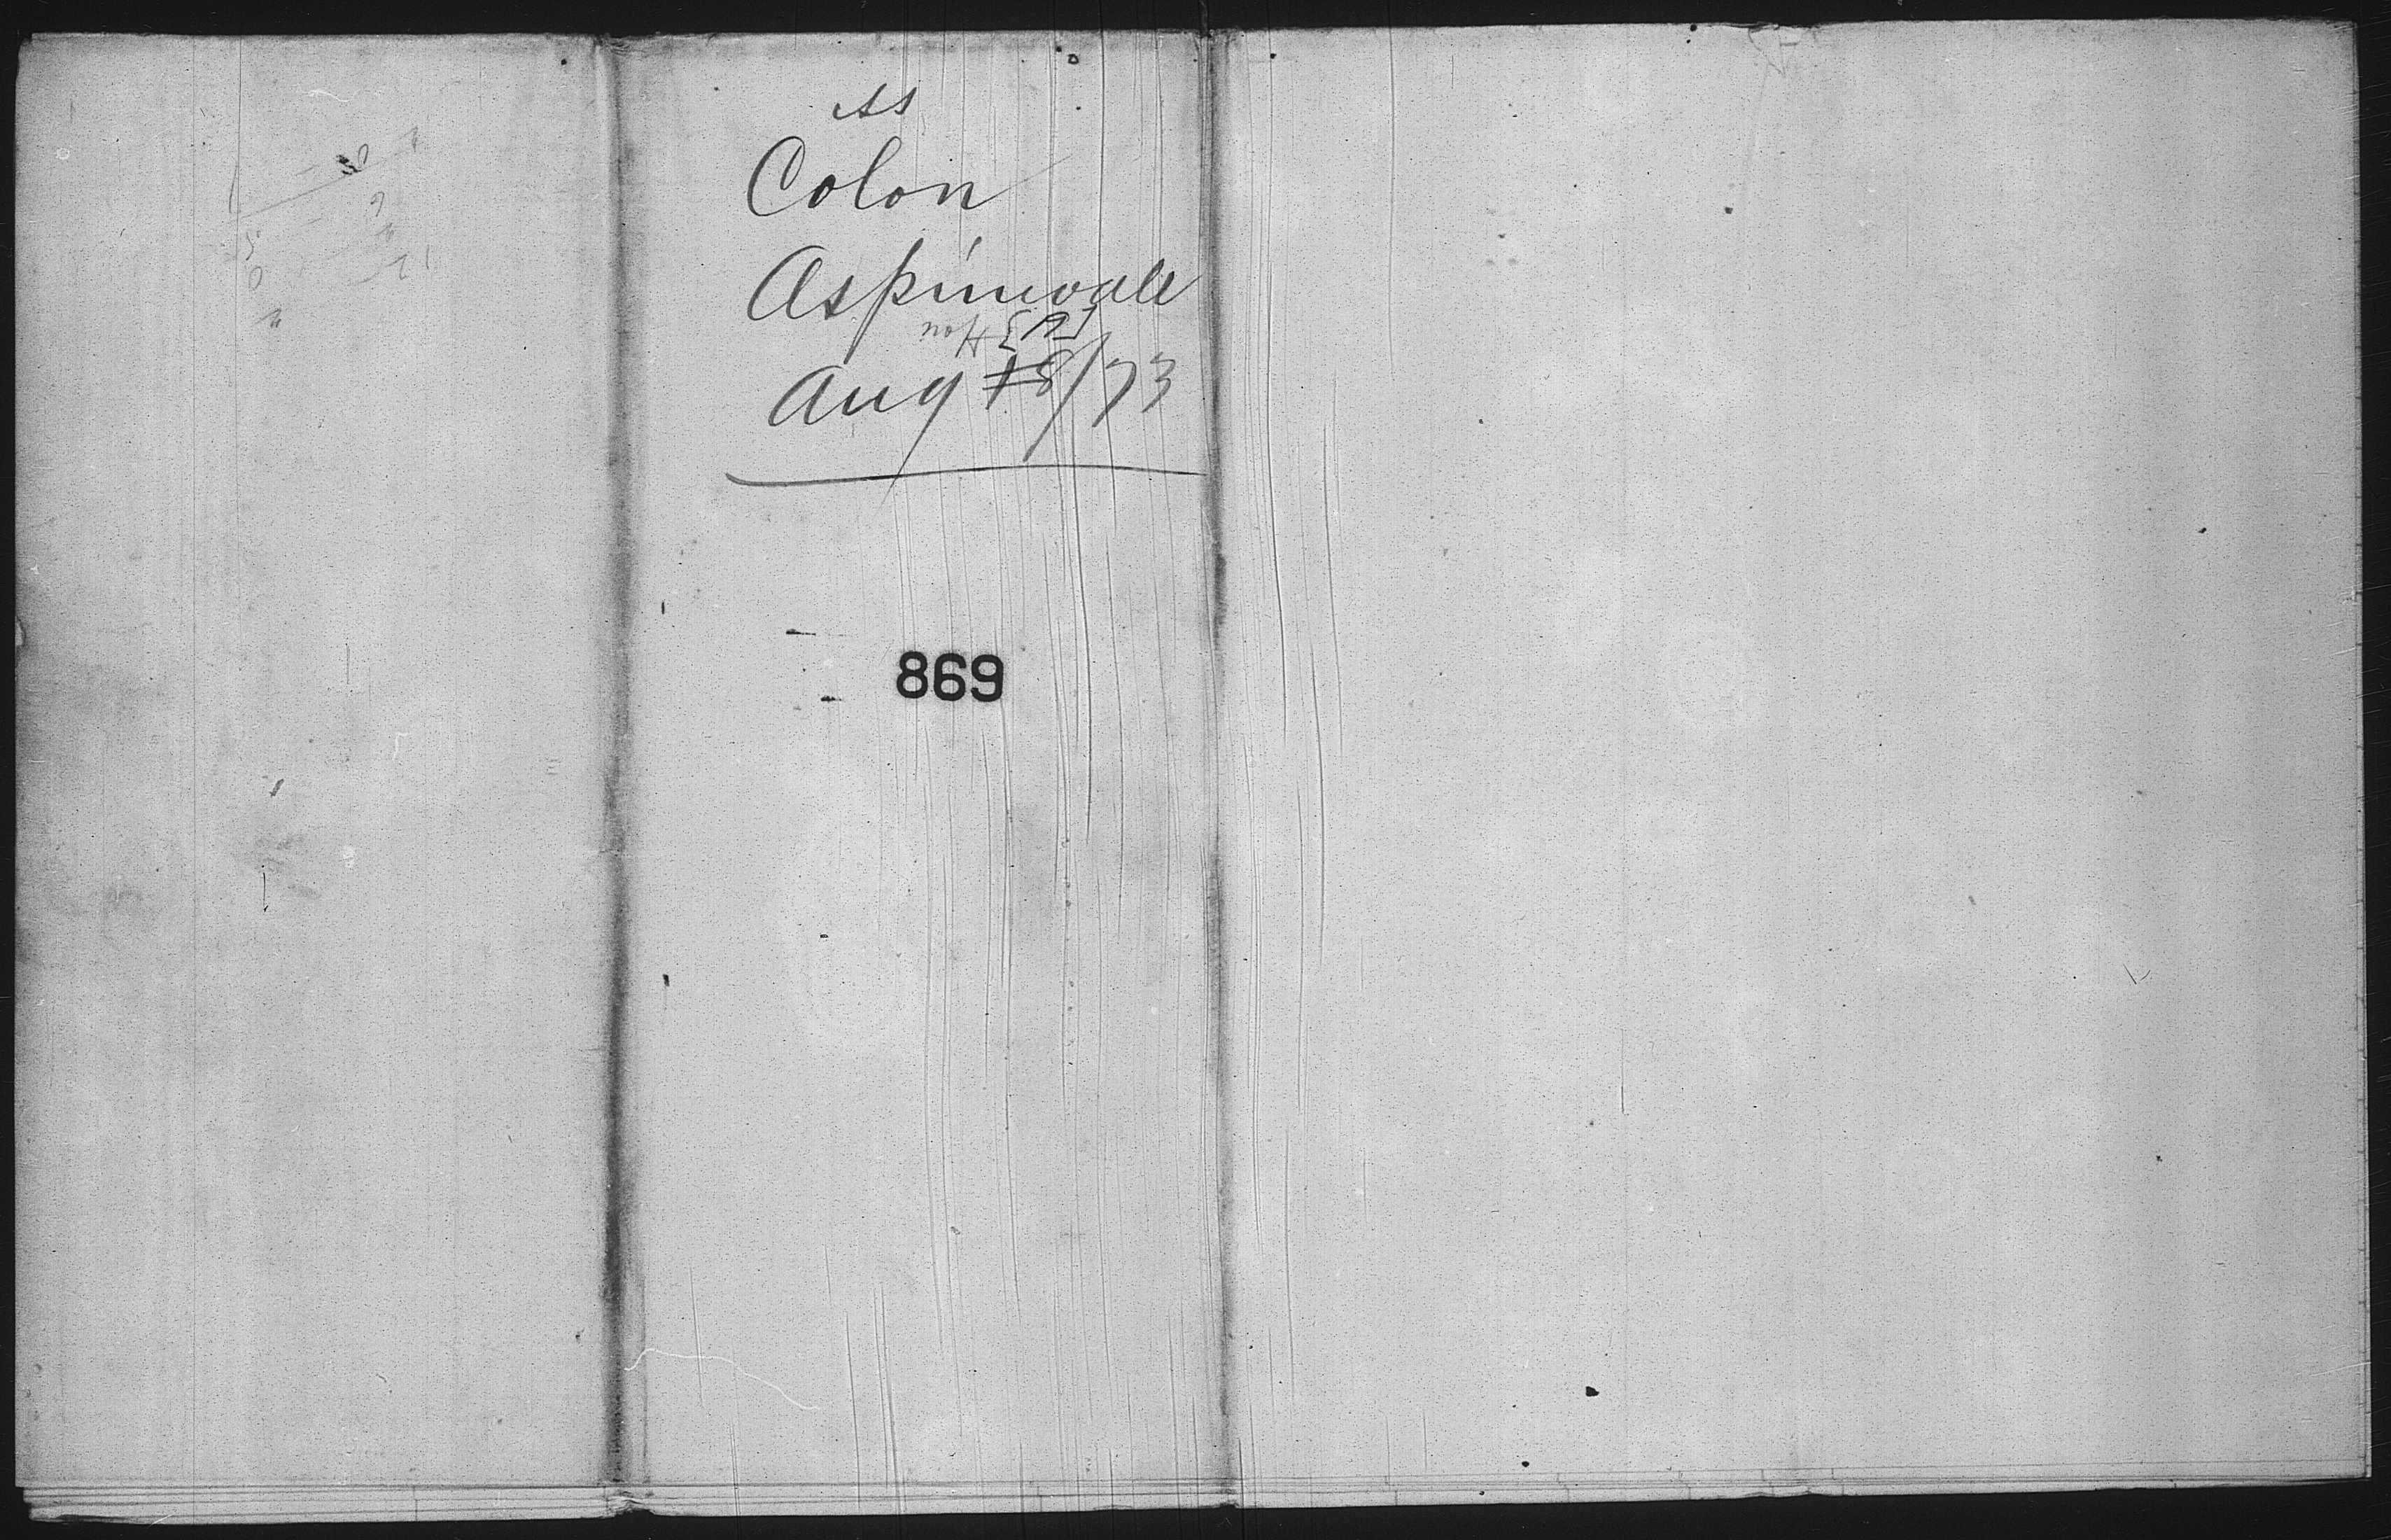 ss
Colon
Aspinwall
Aug 18/73
869